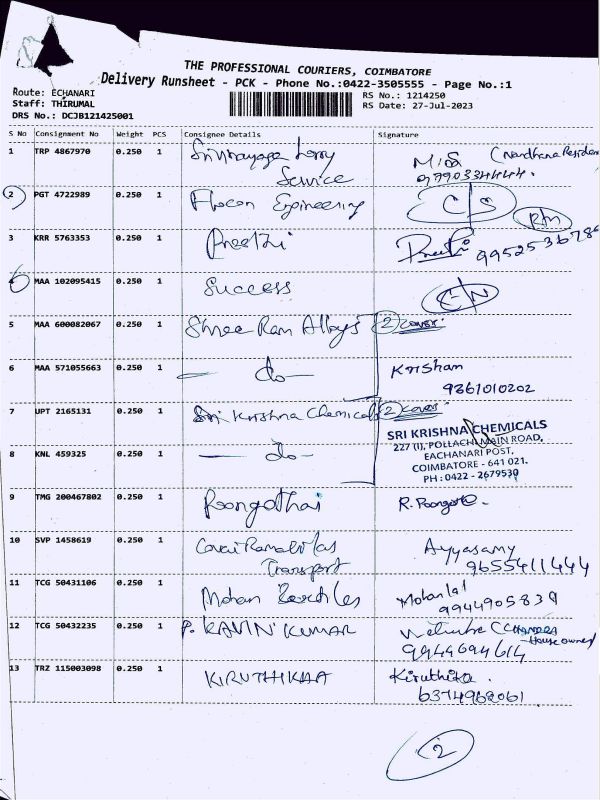 THE PROFESSIONAL COURIERS, COIMBATORE
Delivery Runsheet - PCK - Phone No.:0422-3505555 - Page No.:1
Route: ECHANARI
Staff: THIRUMAL
DRS No.: DCJB121425001
RS No.: 1214250
RS Date: 27-Jul-2023
S No Consignment No Weight PCS Consignee Details Signature
1 TRP 4867970 0.250 1 Lorry Service
2 PGT 4722989 0.250 1 Flocon Engineering CS RM
3 KRR 5763353 0.250 1 Preethi Preethi
4 MAA 102095415 0.250 1 Success
5 MAA 600082067 0.250 1 Shree Ram Alloys 2 cover
6 MAA 571055663 0.250 1 - do - Krisham
9361010202
7 UPT 2165131 0.250 1 Sri Krishna Chemicals 2 cover
SRI KRISHNA CHEMICALS
227 (I), POLLACHI MAIN ROAD,
EACHANARI POST,
COIMBATORE - 641 021.
PH : 0422 - 2679530
8 KNL 459325 0.250 1 - do -
9 TMG 200467802 0.250 1 Poongothai
10 SVP 1458619 0.250 1 Transport Ayyasamy
9655411444
11 TCG 50431106 0.250 1 Mohan Mohanlal
12 TCG 50432235 0.250 1 P. KAVIN KUMAR
House owner
9944694614
13 TRZ 115003098 0.250 1 KIRUTHIKAA Kiruthika.
6374962061
2